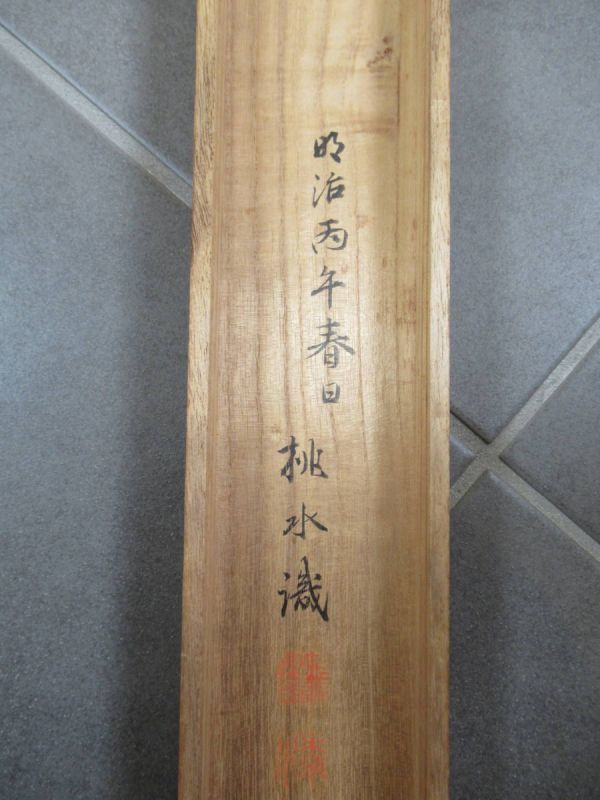 明治丙午春日
桃水識